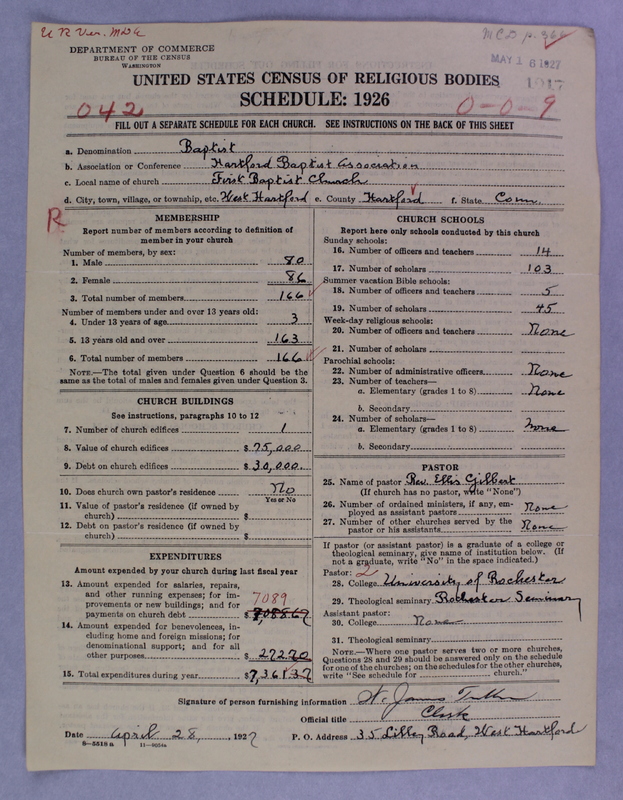 DEPARTMENT OF COMMERCE
BUREAU OF THE CENSUS
WASHINGTON
MAY 16 1927
1917
UNITED STATES CENSUS OF RELIGIOUS BODIES
SCHEDULE: 1926
042
0-0-9
FILL OUT A SEPARATE SCHEDULE FOR EACH CHURCH. SEE INSTRUCTIONS ON THE BACK OF THIS SHEET
a. Denomination Baptist
b. Association or Conference Hartford Baptist Association
c. Local name of church First Baptist Church
d. City, town, village, or township, etc. West Hartford e. County Hartford f. State Conn.
R
MEMBERSHIP
Report number of members according to definition of
member in your church
Number of members, by sex:
1. Male 80
2. Female 86
3. Total number of members 166
Number of members under and over 13 years old:
4. Under 13 years of age 3
5. 13 years old and over 163
6. Total number of members 166
NOTE.—The total given under Question 6 should be
same as the total of males and females given under Question 3.
CHURCH BUILDINGS
See instructions, paragraphs 10 to 12
7. Number of church edifices 1
8. Value of church edifices $ 75,000.
9. Debt on church edifices $ 30,000.
10. Does church own pastor's residence No
Yes or No
11. Value of pastor's residence (if owned by
church) $
12. Debt on pastor's residence (if owned by
church) $
EXPENDITURES
Amount expended by your church during last fiscal year
13. Amount expended for salaries, repairs,
and other running expenses; for im-
provements or new buildings; and for
payments on church debt $ 7,088.67
7089
14. Amount expended for benevolences, in-
cluding home and foreign missions; for
denominational support; and for all
other purposes $ 272.70
15. Total expenditures during year $ 7,361.37
CHURCH SCHOOLS
Report here only schools conducted by this church
Sunday schools:
16. Number of officers and teachers 14
17. Number of scholars 103
Summer vacation Bible schools:
18. Number of officers and teachers 5
19. Number of scholars 45
Week-day religious schools:
20. Number of officers and teachers None
21. Number of scholars
Parochial schools:
22. Number of administrative officers None
23. Number of teachers—
a. Elementary (grades 1 to 8) None
b. Secondary
24. Number of scholars—
a. Elementary (grades 1 to 8) None
b. Secondary
PASTOR
25. Name of pastor Rev. Ellis Gilbert
(If church has no pastor, write "None")
26. Number of ordained ministers, if any, em-
ployed as assistant pastors None
27. Number of other churches served by the
pastor or his assistants None
If pastor (or assistant pastor) is a graduate of a college or
theological seminary, give name of institution below. (If
not a graduate, write "No" in the space indicated.)
Pastor: 2
28. College University of Rochester
29. Theological seminary Rochester Seminary
Assistant pastor:
30. College None
31. Theological seminary
NOTE.—Where one pastor serves two or more churches,
Questions 28 and 29 should be answered only on the schedule
for one of the churches; on the schedules for the other churches,
write "See schedule for church."
Signature of person furnishing information James
Official title Clerk
Date April 28, 1927 P. O. Address 35 Lilley Road, West Hartford
8—5518 a 11—9054a